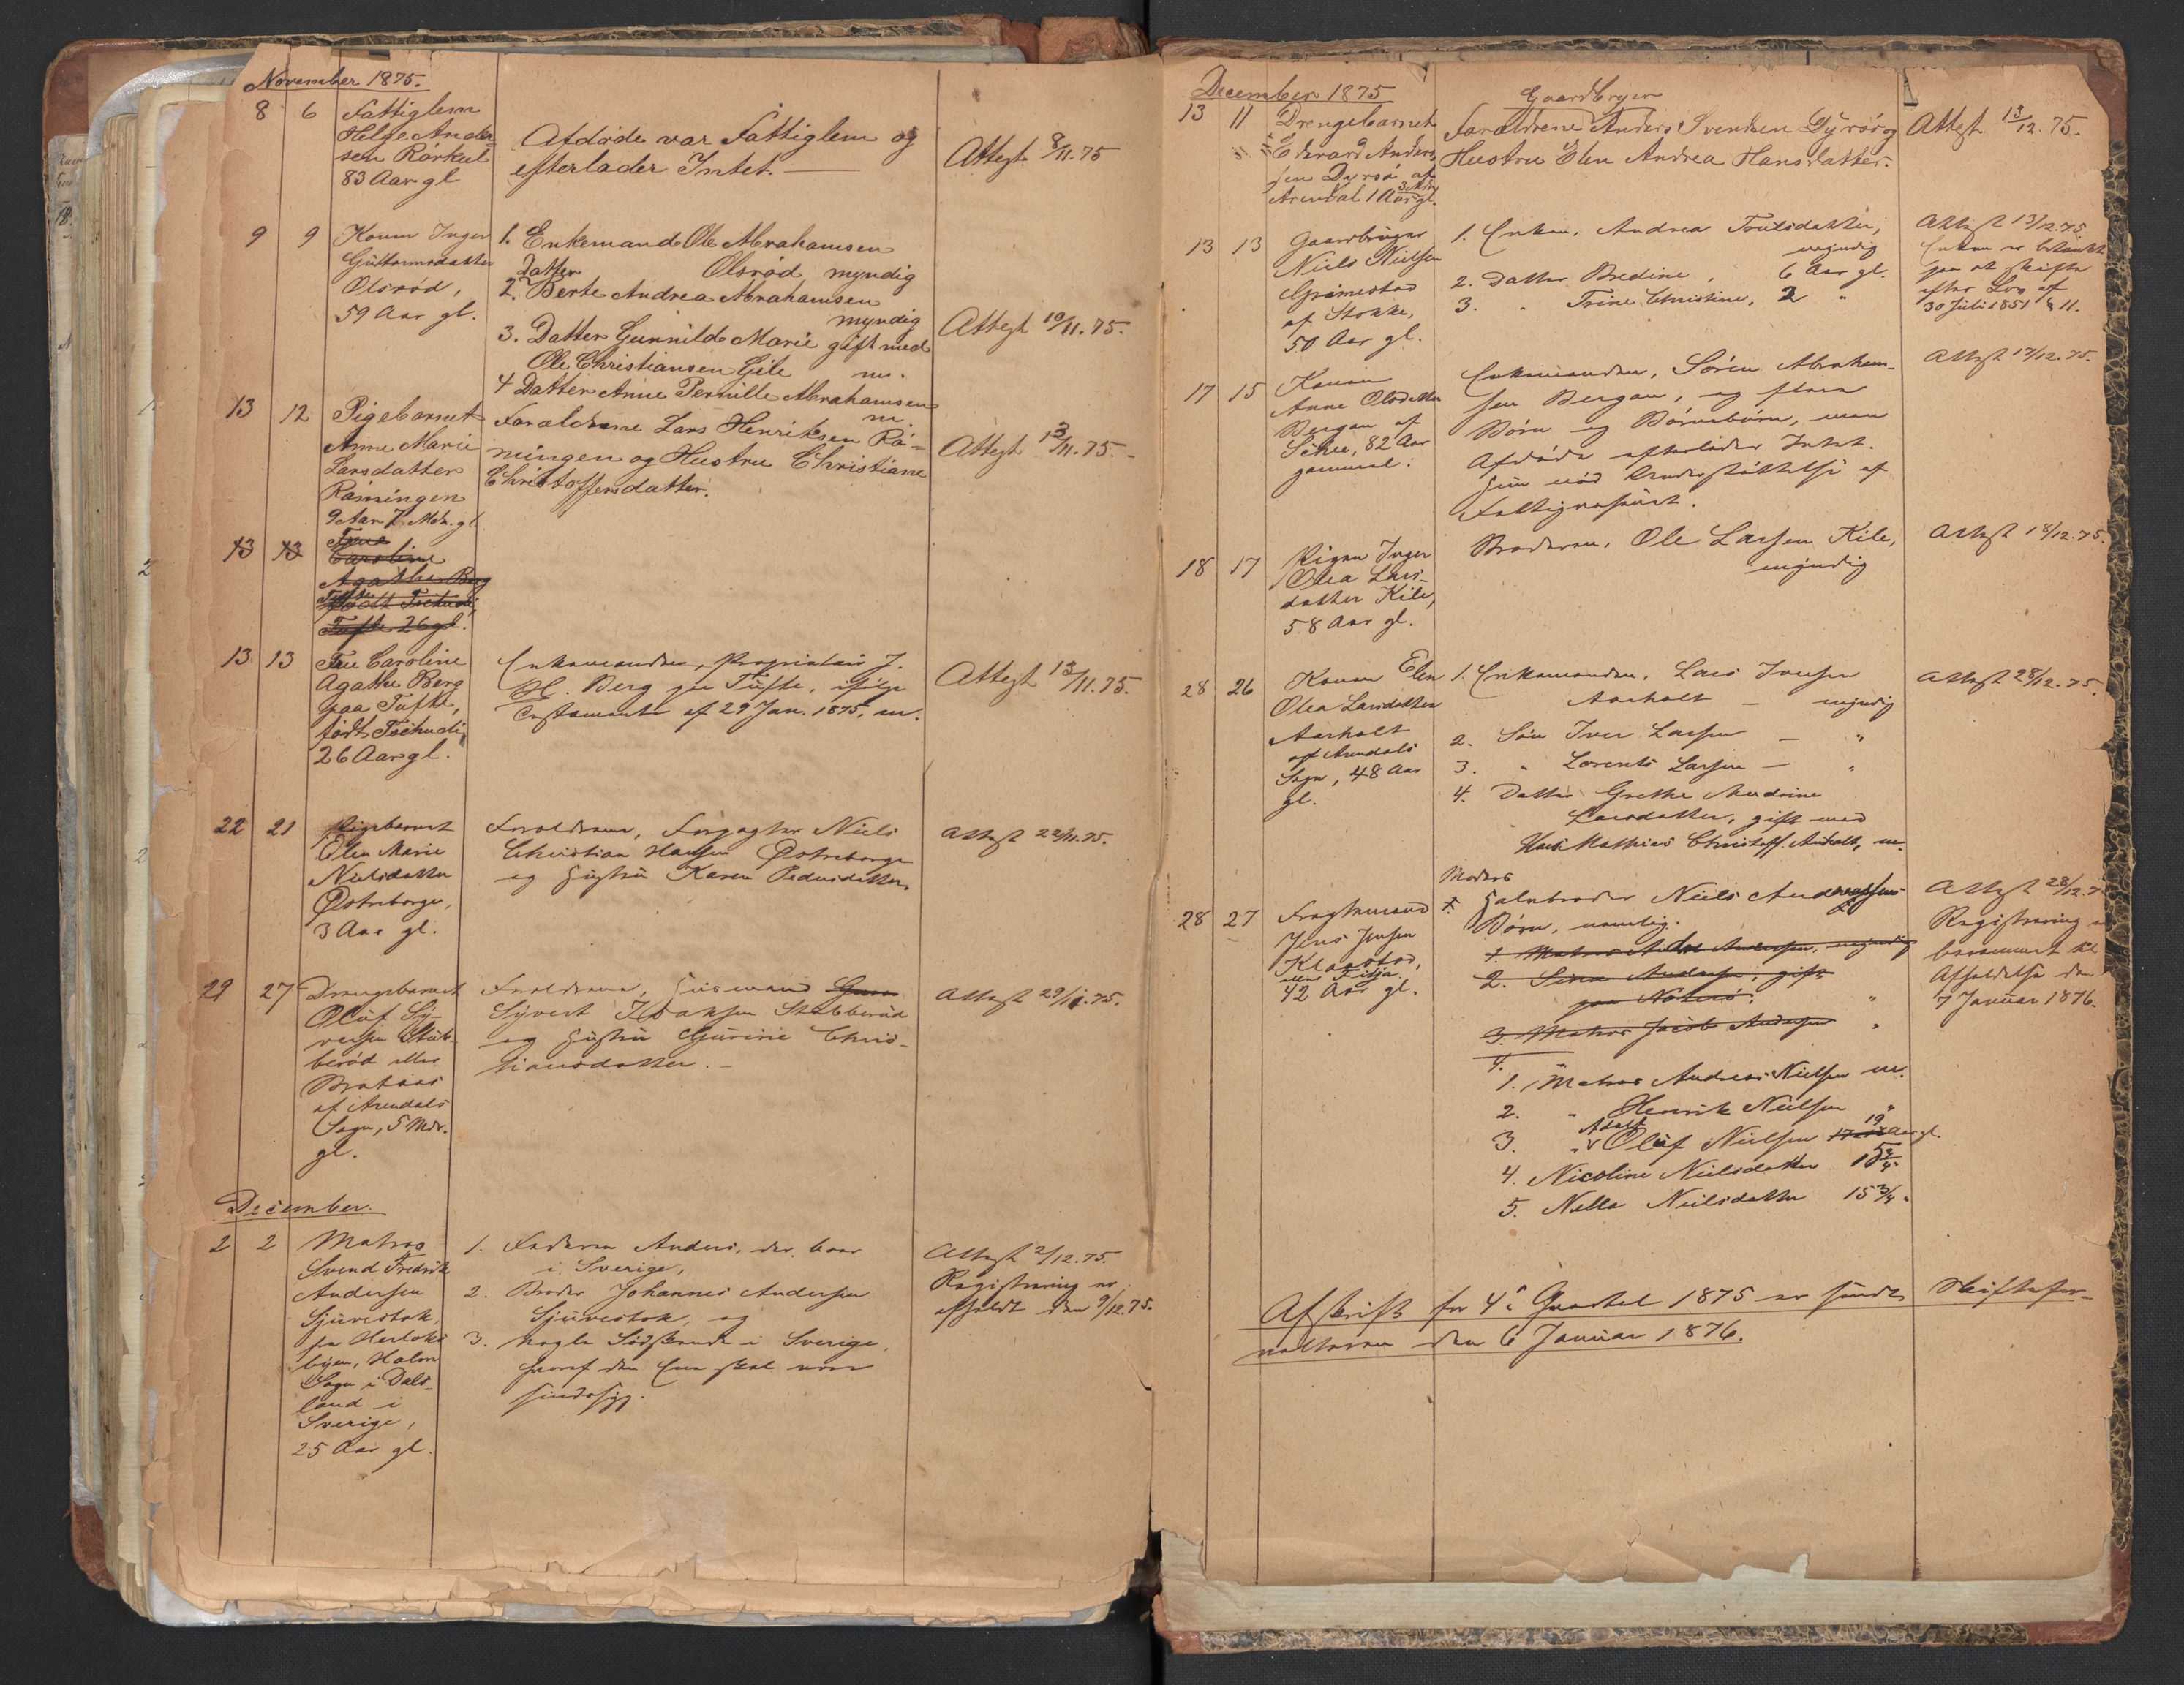 November 1875.
8 6 Fattiglem
Helge Ander-
sen Rörkul
83 Aar gl
Afdøde var Fattiglem og
efterlader Intet.
Attest 8/11.75
9 9 Konen Inger
Guttormsdatter
Olsrød,
59 Aar gl.
1. Enkemand Ole Abrahamsen
Olsrød myndig
Datter
2. Berte Andrea Abrahamsen
myndig
3. Datter Gunnild Marie gift med
Ole Christiansen Gile m.
4 Datter Anne Pernille Abrahamsen
m.
Attest 10/11.75.
13 12 Pigebarnet
Anne Marie
Larsdatter
Räningen
9 Aar 7 Mdr. gl
Forældrene Lars Henriksen Rä-
ningen og Hustru Christiane
Christoffersdatter.
Attest 13/11.75.
13 13 Frue
Caroline
Agathe Berg
Tufte
født Tschudi,
Tufte 26 gl.
13 13 Frue Caroline
Agathe Berg
paa Tufte,
født Tschudi,
26 Aar gl.
Enkemanden, Proprietær J.
H. Berg paa Tufte, ifølge
Testamente af 29 Jan. 1875, m.
Attest 13/11.75.
22 21 Pigebarnet
Elen Marie
Nielsdatter
Østreborge,
3 Aar gl.
Forældrene, Forpagter Niels
Christian Hansen Østreborge
og Hustru Karen Pedersdatter.
Attest 22/11.75.
29 27 Drengebarnet
Oluf Sy-
versen Stub-
berød eller
Brataas
af Arendals
Sogn, 5 Mdr.
gl.
Forældrene, Husmand
Syvert Isaksen Stubberød
og Hustru Gurine Chris-
tiansdatter.
Attest 29/11.75.
December.
2 2 Matros
Svend Fredrik
Andersen
Sjuvestok,
fra
byen, Holm
Sogn i Dals-
land i
Sverige,
25 Aar gl.
1. Faderen Anders, der boer
i Sverige,
2. Broder Johannes Andersen
Sjuvestok, og
3. nogle Sødskende i Sverige,
hvoraf den Ene skal være
sindssyg.
Attest 2/12.75.
Registrering er
afholdt den 9/12.75.
December 1875
13 11 Drengebarnet
Edvard Anders-
sen Dyrsø af
3 Mdr
Arendal 1 Aar gl.
Gaardbruger
Forældrene Anders Svendsen Dyrsø og
Hustru Elen Andrea Hansdatter.
Attest 13/12.75.
13 13 Gaardbruger
Niels Nielsen
Grimestad
af Stokke,
50 Aar gl.
1. Enken, Andrea Trulsdatter,
myndig
2. Datter Bredine, 6 Aar gl.
3. " Trine Christine, 2 "
Attest 13/12.75.
Enken er betænkt
paa at skifte
efter Lov af
30 Juli 1851 § 11.
17 15 Konen
Anne Olsdatter
Bergan af
Schee, 82 Aar
gammel.
Enkemanden, Sören Abraham-
sen Bergan, og flere
Børn og Børnebørn, men
Afdøde efterlader Intet.
Hun nød Understøttelse af
Fattigvæsenet.
Attest 17/12.75.
18 17 Pigen Inger
Olea Lars-
datter Kile,
58 Aar gl.
Broderen, Ole Larsen Kile,
myndig
Attest 18/12.75.
28 26 Konen Elen
Olea Larsdatter
Aarholt
af Arendals
Sogn, 48 Aar
gl.
1. Enkemanden, Lars Iversen
Aarholt — myndig
2. Søn Iver Larsen — "
3. " Lorents Larsen — "
4. Datter Grethe Andrine
Larsdatter, gift med
Hans Mathias Christoff. Aarholt, m.
Attest 28/12.75.
28 27 Fragtemand
Jens Jensen
Klaastad,
eller Fitja
42 Aar gl.
Moders
1. Halvbroder Niels Andreassens
Børn, nemlig.
1. Matros Andersen, myndig
2. Andersen, gift
paa Nøterø. "
3. Matros Jacob Andersen "
4.
1. Matros Andreas Nielsen m.
2. " Henrik Nielsen "
Adolf 19
3. " Oluf Nielsen Aar gl.
4. Nicoline Nielsdatter
5. Nella Nielsdatter 15 3/4 "
Attest 28/12.7
Registrering
berammet til
Afholdelse den
7 Januar 1876.
Afskrift for 4de Qvartal 1875 er sendt Skiftefor-
valteren den 6 Januar 1876.